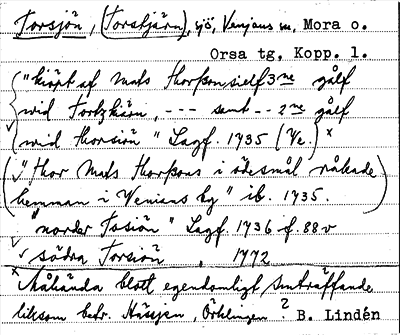 Torsjön, (Torstjärn), sjö, Venjans sn, Mora o.
Orsa tg, Kopp. l.
"kiöpt af Mats Thorßon sielf 3ne gålf
wid Tortzkiärn, --- samt -- 2ne gålf
wid thorsiön" Lagf. 1735 (Ve.) x
("Thor Mats Thorßons i ödesmål råkade
hemman i Wenians by" ib. 1735.)
"norder Tosiön" Lagf. 1736 f. 88v
södra Torsiön " 1772
x Måhända blott egendomligt sinträffande
liksom betr. Hässjen, Örklingen? B. Lindén